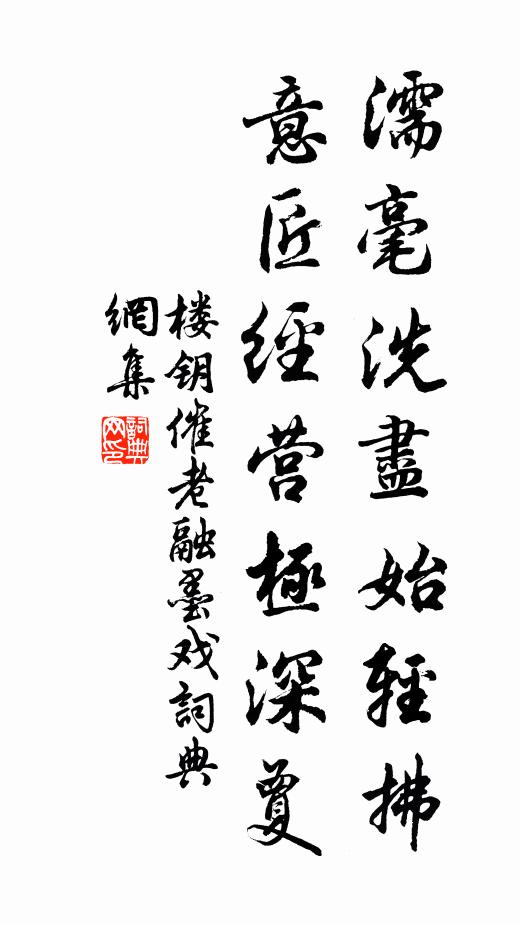 濡毫洗盡始輕拂
意匠經营極深夐
楼钥催老融墨戏詞典
網集
詞典
网印